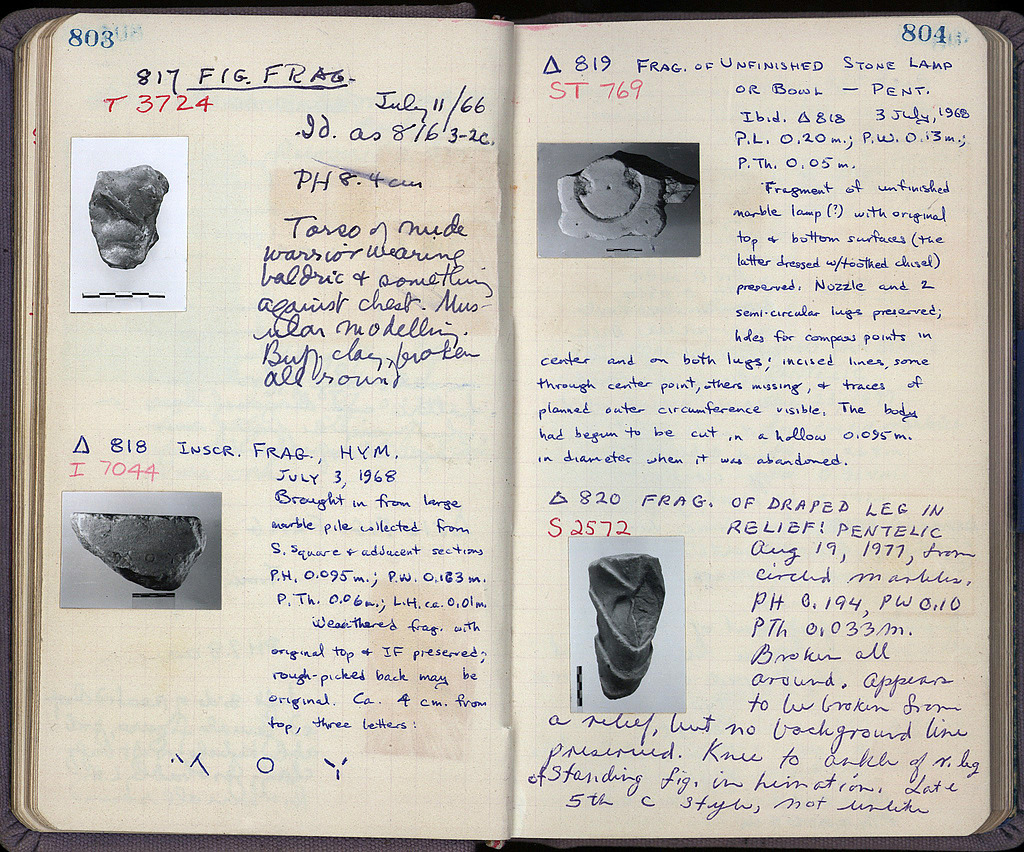 803
817 FIG. FRAG.
T 3724
July 11/66
Id. as 816 3-2c.
PH 8.4 cm
Torso of nude
warrior wearing
baldric & something
against chest. Mus-
cular modelling.
Buff clay, broken
all round
Δ 818 INSCR. FRAG., HYM.
I 7044
JULY 3, 1968
Brought in from large
marble pile collected from
S. Square & adjacent sections
P.H. 0.095 m.; P.W. 0.183 m.
P. Th. 0.06 m.; L.H. ca. 0.01 m.
Weathered frag. with
original top & IF preserved;
rough-picked back may be
original. Ca. 4 cm. from
top, three letters:
Ο Υ
804
Δ 819 FRAG. OF UNFINISHED STONE LAMP
ST 769
OR BOWL — PENT.
Ibid. Δ 818 3 July, 1968
P.L. 0.20 m.; P.W. 0.13 m.;
P.Th. 0.05 m.
Fragment of unfinished
marble lamp (?) with original
top & bottom surfaces (the
latter dressed w/toothed chisel)
preserved. Nozzle and 2
semi-circular lugs preserved;
holes for compass points in
center and on both lugs; incised lines, some
through center point, others missing, & traces of
planned outer circumference visible. The body
had begun to be cut in a hollow 0.095 m.
in diameter when it was abandoned.
Δ 820 FRAG. OF DRAPED LEG IN
S 2572
RELIEF: PENTELIC
Aug 19, 1977, from
circled marbles.
PH 0.194, PW 0.10
PTh 0.033 m.
Broken all
around. Appears
to be broken from
a relief, but no background line
preserved. Knee to ankle of r. leg
of standing fig. in himation. Late
5th c style, not unlike